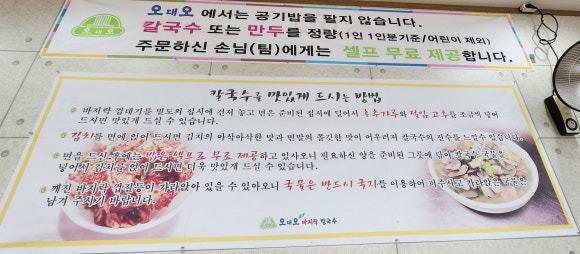 오대오
오대오 에서는 공기밥을 팔지 않습니다.
칼국수 또는 만두를 정량(1인 1인분기준/어린이 제외)
주문하신 손님(팀)에게는 셀프 무료 제공합니다.
칼국수를 맛있게 드시는 방법
바지락 껍데기를 별도의 접시에 건져 놓고 면은 준비된 접시에 덜어서 후추가루와 절임 고추를 조금씩 넣어
드시면 맛있게 드실 수 있습니다.
김치를 면에 얹어 드시면 김치의 아삭아삭한 맛과 면발의 쫄깃한 맛이 어우러져 칼국수의 진수를 느낄수 있습니다.
면을 드신 후에는 밥은 셀프로 무료 제공하고 있사오니 필요하신 양을 준비된 그릇에 담아 칼국수국물을
넣어서 김치를 얹어 드시면 더욱 맛있게 드실 수 있습니다.
깨진 바지락 껍질등이 가라앉아 있을 수 있아오니 국물은 반드시 국자를 이용하여 떠주시고 가라앉은국물은
남겨 주시기 바랍니다.
오대오 바지락 칼국수